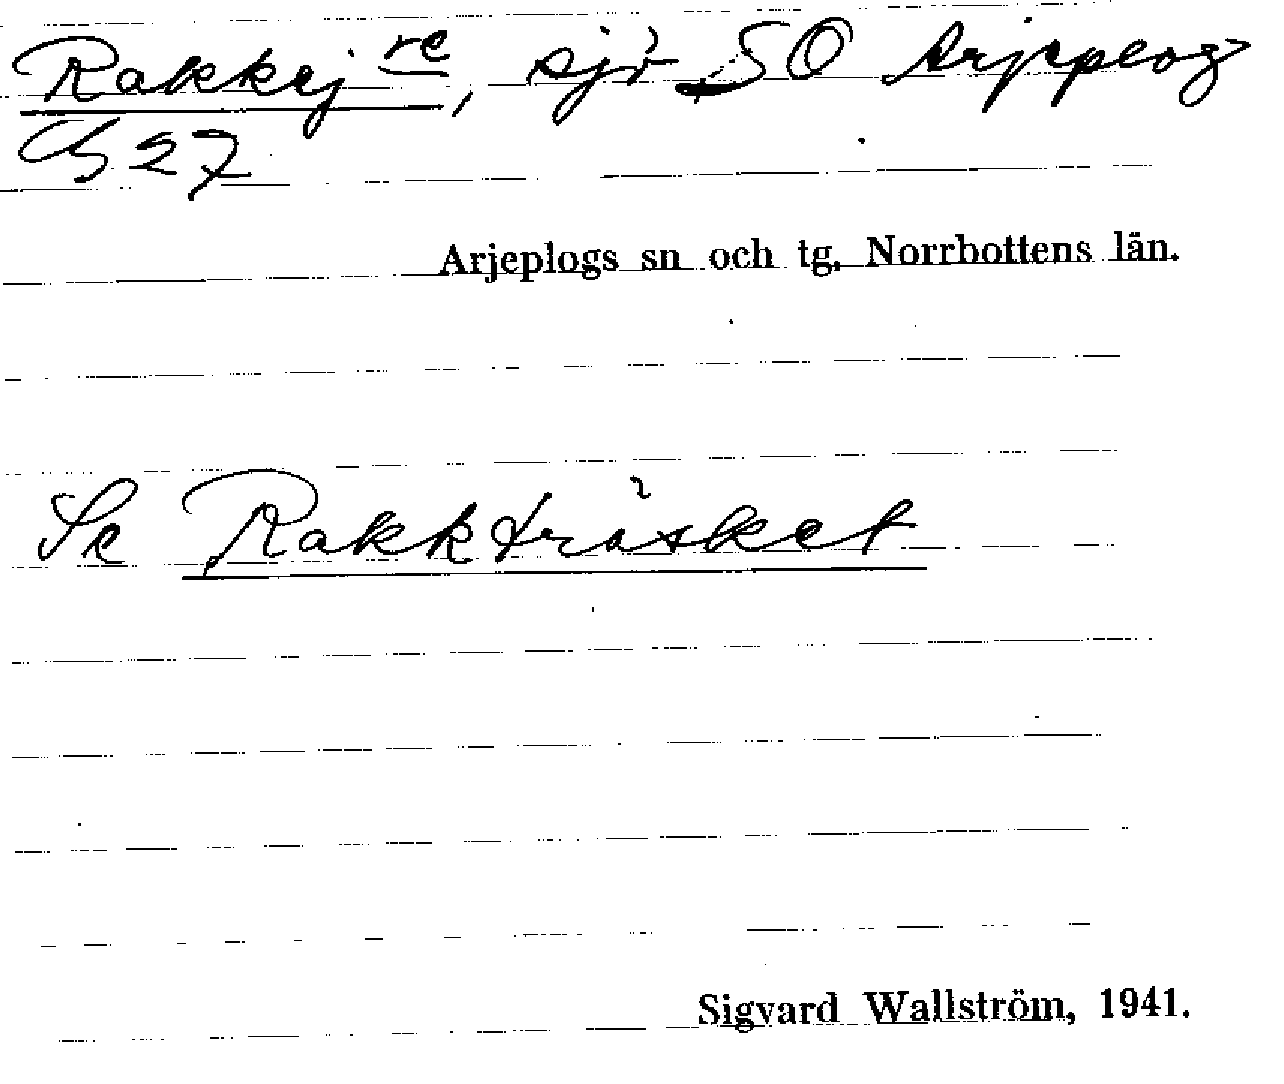 Rakkejre, sjö SO Arjeplog
27
Arjeplogs sn och tg. Norrbottens län.
Se Rakkträsket
Sigvard Wallström, 1941.